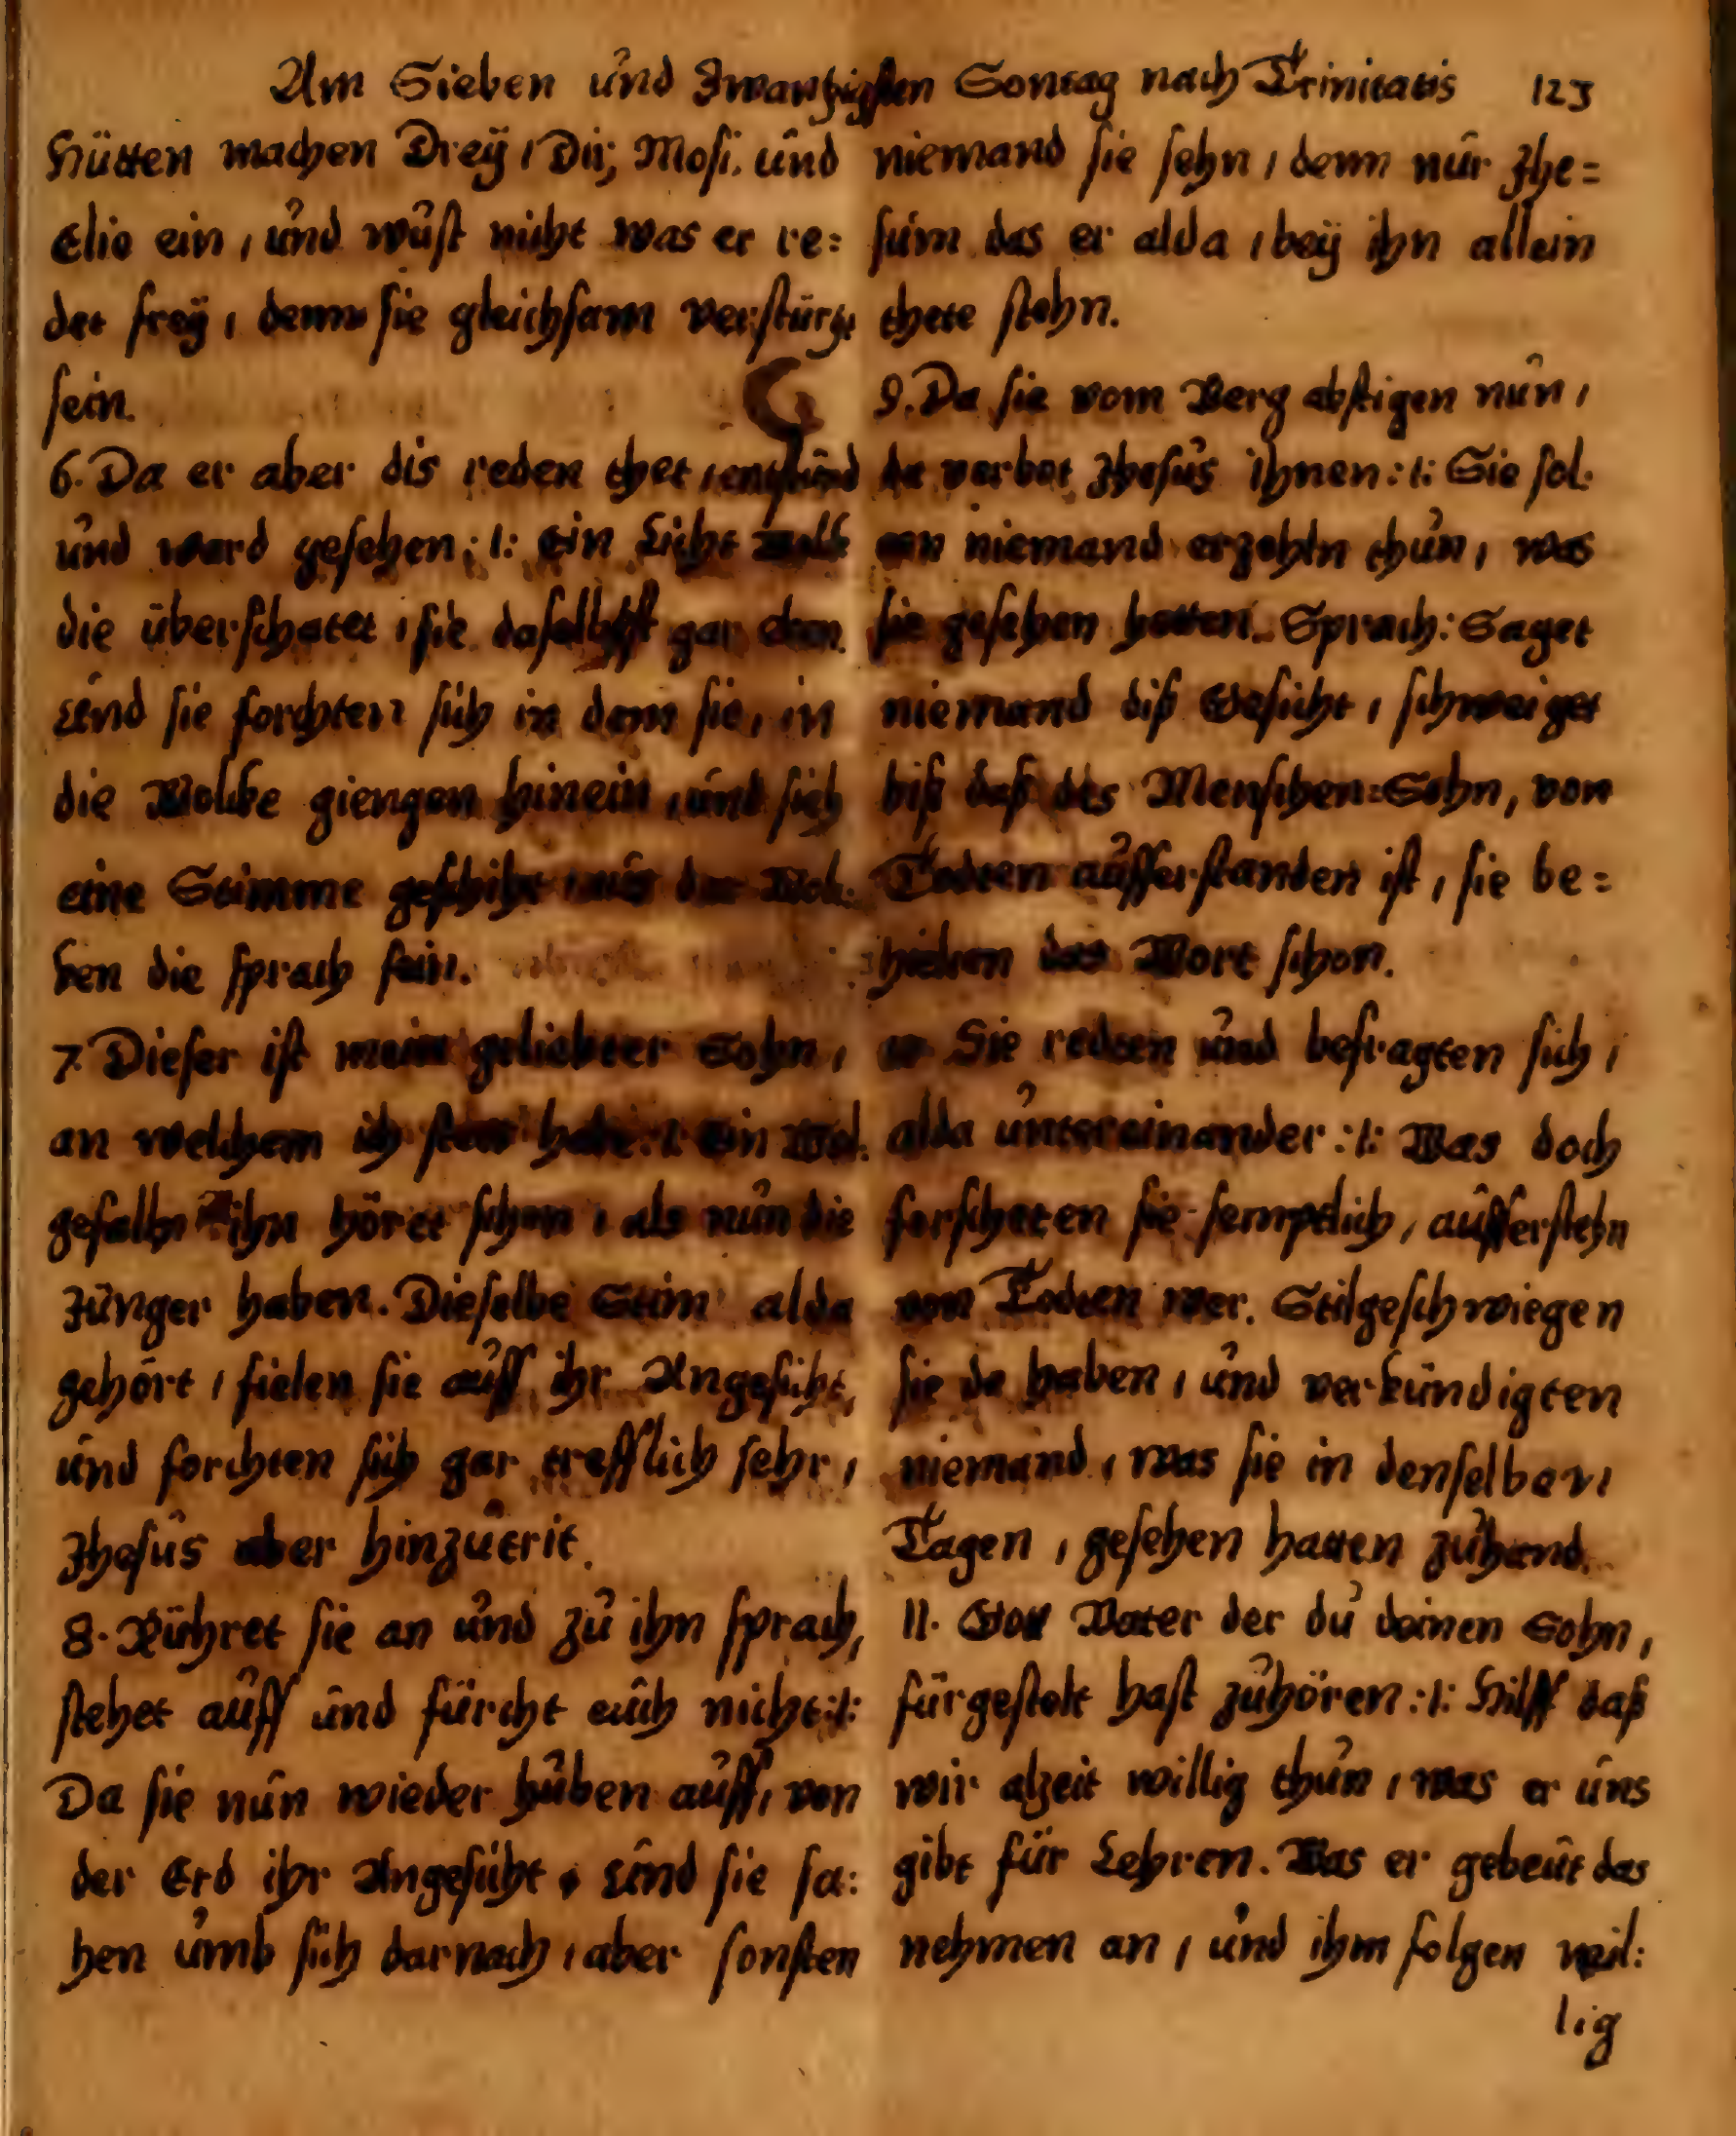 Am Sieben und Zwantzigsten Sontag nach Trinitatis 123
Hütten machen Dreÿ / Dir, Mosi. und
Elie ein / und wust nicht was er re=
det freÿ / denn sie gleichsam verstürtzt
sein.
6. Da er aber dis reden thet / entstund
und ward gesehen :/: Ein Licht Wolk
die überschatet / sie daselbst gar
Und sie forchten sich in dem sie, in
die Wolcke giengen hinein / und sieh
eine Stimme geschiht / aus der Wol=
ken die sprach fein.
7. Dieser ist mein geliebter Sohn /
an welchem ich habe :/: Ein Wol=
gefalln ihn höret schon / als nun die
Jünger haben. Dieselbe Stim alda
gehört / fielen sie auff ihr Angesicht,
und forchten sich gar trefflich sehr /
Jhesus aber hinzutrit.
8. Rühret sie an und zu ihn sprach,
stehet auff und fürcht euch nicht :/:
Da sie nun wieder huben auff / von
der Erd ihr Angesicht / Und sie sa=
hen umb sich darnach / aber sonsten
niemand sie sehn / denn nur Jhe=
sum das er alda / beÿ ihn allein
thete stehn.
9. Da sie vom Berg abstigen nun /
da verbot Jhesus ihnen :/: Sie sol=
en niemand erzehln thun / was
sie gesehen hetten. Sprach: Saget
niemand diß Gesicht / schweiget
biß daß des Menschen=Sohn, von
Todten aufferstanden ist / sie be=
hielten das Wort schon.
10 Sie redten und befragten sich /
alda untereinander :/: Was doch
forscheten sie semptlich / aufferstehn
von Todten wer. Stilgeschwiegen
sie da haben / und verkündigten
niemand / was sie in denselben
Tagen / gesehen hatten zuhand.
11. Gott Vater der du deinen Sohn /
fürgestelt hast zuhören :/: Hilff daß
wir alzeit willig thun / was er uns
gibt für Lehren. Was er gebeut das
nehmen an / und ihm folgen wil=
lig